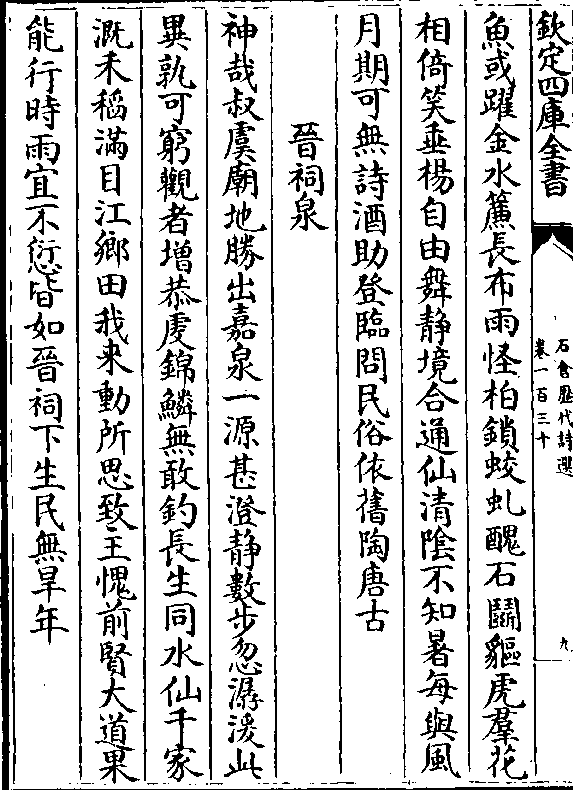 欽定四庫全書
石倉歷代詩選
卷一百三十
九
魚或躍金水簾長布雨怪柏鎖蛟虬醜石鬬貙虎羣花
相倚笑垂楊自由舞静境合通仙清陰不知暑每與風
月期可無詩酒助登臨問民俗依舊陶唐古
晉祠泉
神哉叔虞廟地勝出嘉泉一源甚澄静數步忽潺湲此
異孰可窮觀者增恭虔錦鱗無敢釣長生同水仙千家
溉禾稻滿目江鄉田我来動所思致主愧前賢大道果
能行時雨宜不愆皆如晉祠下生民無旱年